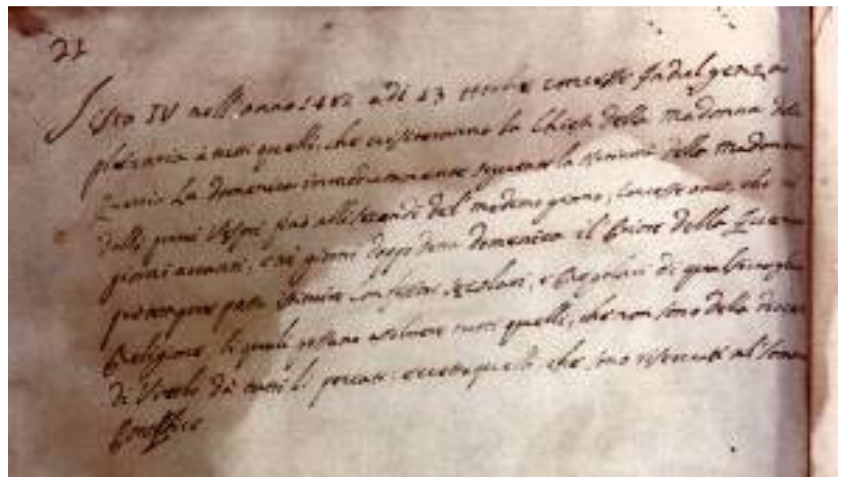 21
Sisto IV nell'anno 1482 adi 13 ottobre concesse Indulgenzia
plenaria à tutti quelli, che visiteranno la Chiesa della Madonna della
Quercia la Domenica immediatamente seguente la della Madonna
dalli primi Vespri fino alli secondi del medemo giorno, concesse anco, che
giorni avanti, e giorni doppo detta domenica il Priore della Quercia
potesse Confessori secolari, e Regolari di qualsivoglia
Religione, li quali possano assolvere tutti quelli, che non sono della diocesi
di da tutti li peccati eccetto quelli, che sono riservati al Sommo
Pontefice